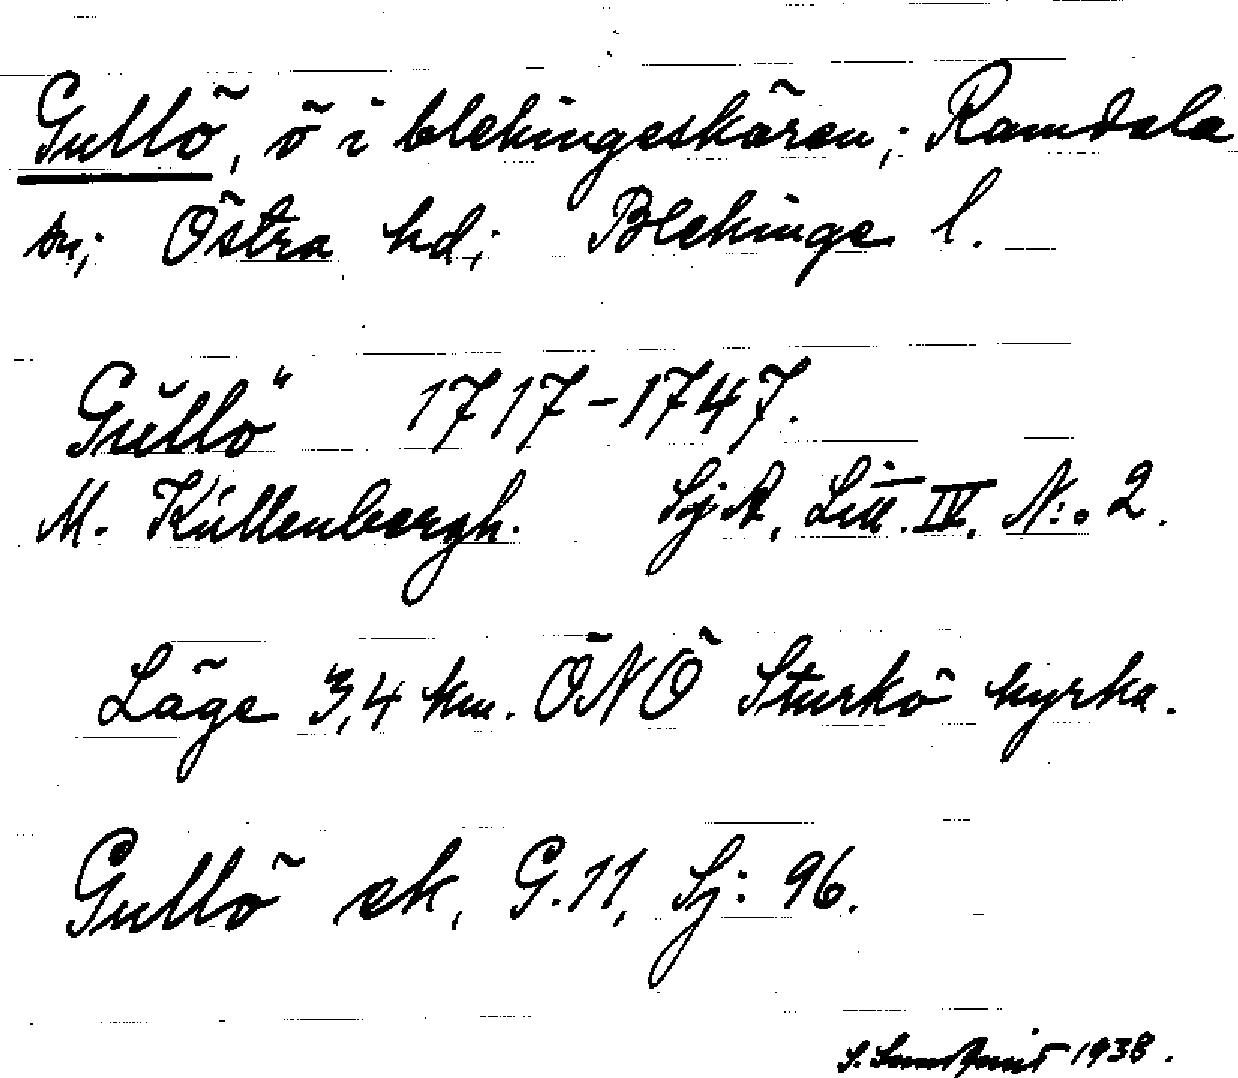 Gullö, ö i blekingeskären; Ramdala
sn; Östra hd; Blekinge l.
Gŭllö 1717-1747.
M. Kullenbergh. Sj.A. Litt. IV. N:o 2.
Läge 3,4 km. ÖNÖ Sturkö kyrka.
Gullö ek, G.11, Sj: 96.
S. 1938.